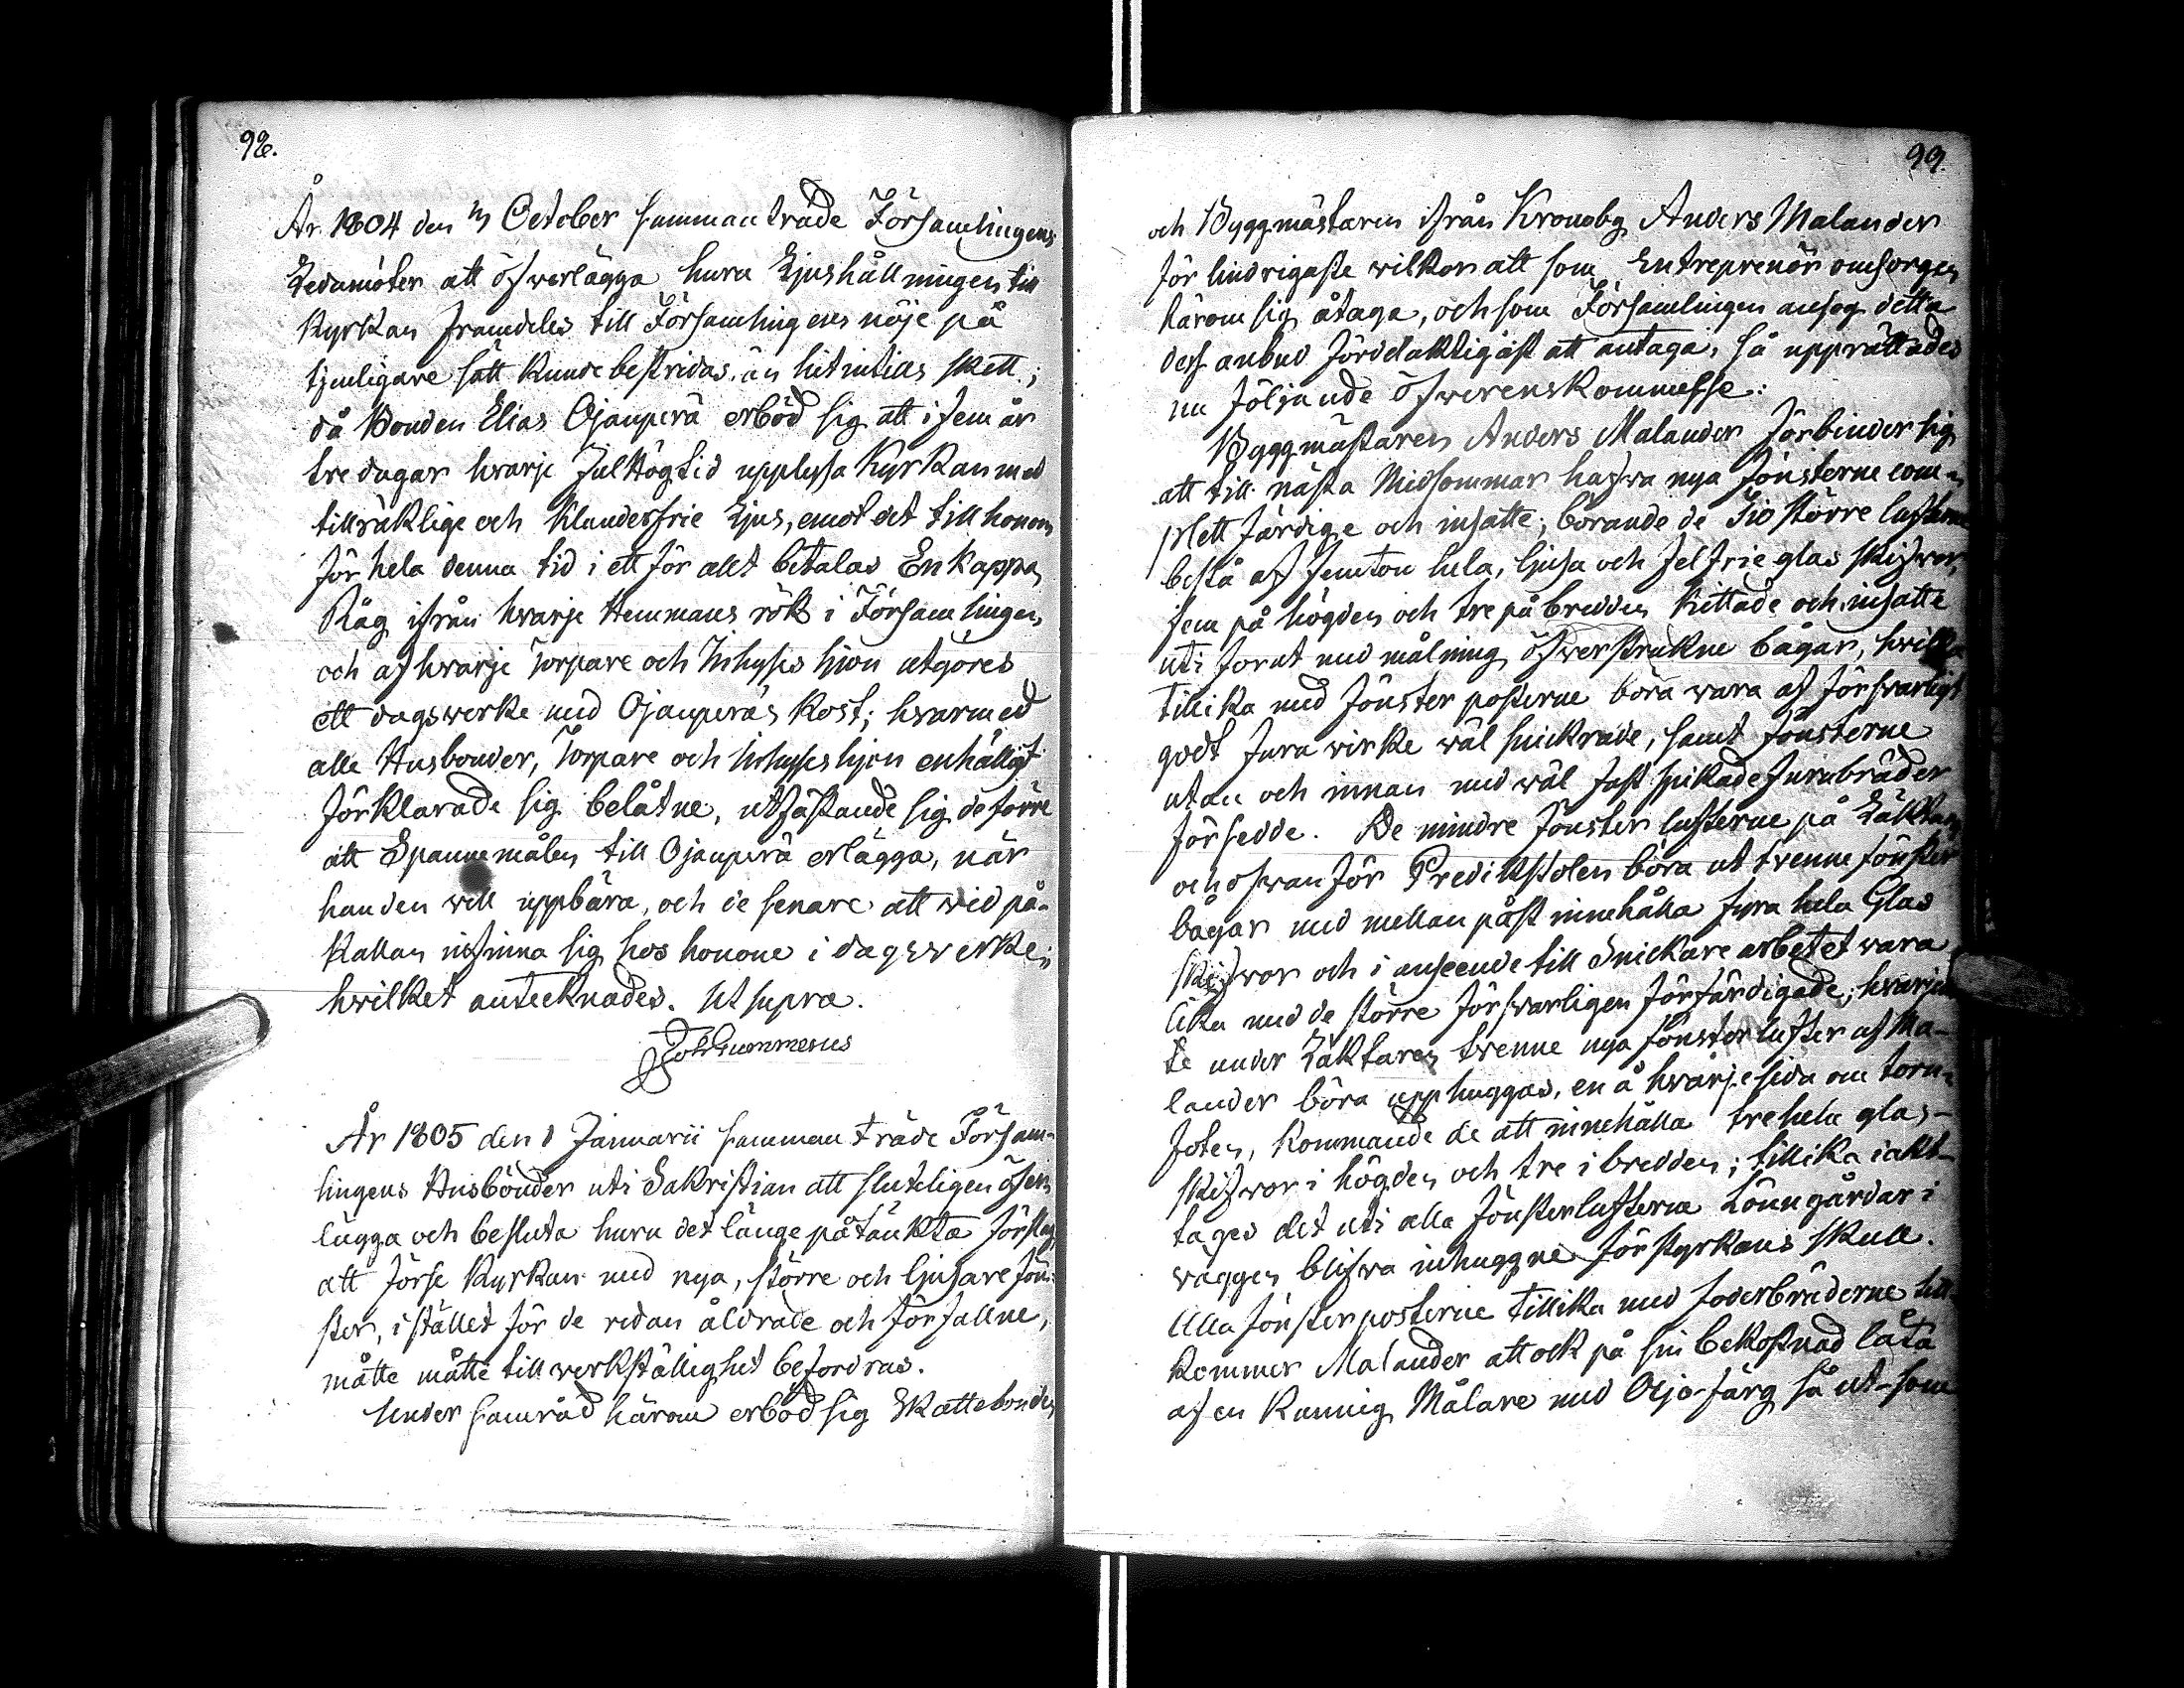 98.
År 1804 den October sammanträde Församlingens
Ledamöter att öfwerlägga huru Ljushållningen till
Kyrkan framdeles till Församlingens nöje på
tjenligare sätt kunde bestridas, än hitintills skett;
då Bonden Elias Ojanperä erböd sig att i fem år
tre dagar hvarje Jul Högtid upplysa Kyrkan med
tillräklige och klanderfrie Ljus, emot det till honom
för hela denna tid i ett för allt betalas En kappa
Råg ifrån hvarje Hemmans rök i Församlingen,
och af hvarje Torpare och Inhyses hjon utgöres
ett dagswerke med Ojanperäs kost; hvarmed
alle Husbönder, Torpare och Inhyseshjon enhälligt
förklarade sig belåtne, utfästande sig de förre
att Spannemålen till Ojanperä erlägga, när
han den will uppbära, och de senare att wid på-
kallan infinna sig hos honom i dagswerke;
hvilket antecknades. Ut supra.
Joh Gummerus
År 1805 den 1 Januarii sammanträde Försam-
lingens Husbönder uti Sakristian att sluteligen öfwer-
lägga och besluta huru det länge påtänkta förslag
att förse Kyrkan med nya, större och ljusare fön-
ster, i stället för de redan åldrade och förfallne,
måtte måtte till werkställighet befordras.
Under samråd härom erböd sig Skattebonden
99.
och Byggmästaren ifrån Kronoby Anders Malander
för lindrigaste wilkor att som Entreprenör omsorgen
härom sig åtaga, och som Församlingen ansog detta
dess anbud fördelaktigast att antaga, så upprättades
nu följande öfwerenskommelse:
Byggmästaren Anders Malander förbinder sig
att till nästa Midsommar hafwa nya fönsterne com-
plett färdige och insatte; börande de Tio större lufterne
bestå af femton hela, ljusa och felfrie glas skifwor,
fem på högden och tre på bredden kittade och insatte
uti forut med målning öfwerstrukne bågar, hvilka
tillika med fönster posterne böra wara af försvarligt
godt furu wirke wäl snickrade, samt fönsterne
utan och innan med wäl fast spikade furubräder
försedde. De mindre fönster lufterne på Läktaren
och ofwanför Predikstolen böra ut trenne fönster
bågar med mellan påst innehålla fyra hela Glas
skifwor och i anseende till Snickare arbetet wara
lika med de större försvarligen förfärdigade; hvarjem-
te under Läktaren trenne nya fönsterlufter af Ma-
lander böra upphuggas, en å hvarje sida om torn-
foten, kommande de att innehålla tre hela glas-
skifwor i högden och tre i bredden; tillika iakt-
tages det uti alla fönsterlufterne Lönngårdar i
wäggen blifwa inhuggne för styrkans skull.
Alla fönsterposterne tillika med foderbräderne till-
kommer Malander att ock på sin bekostnad låta
af en kunnig Målare med Olje-färg så ut- som